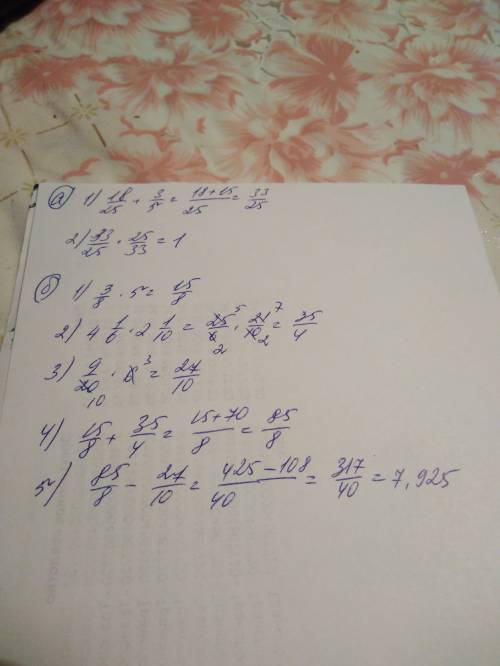 а) 1) 18/25 + 3/5 = (18+15)/25 = 33/25
2) 33/25 · 25/33 = 1
б) 1) 3/8 · 5 = 15/8
2) 4 1/6 · 2 1/10 = 25⁵/6₂ · 21⁷/10₂ = 35/4
3) 9/20₁₀ · 6³ = 27/10
4) 15/8 + 35/4 = (15+70)/8 = 85/8
5) 85/8 − 27/10 = (425−108)/40 = 317/40 = 7,925